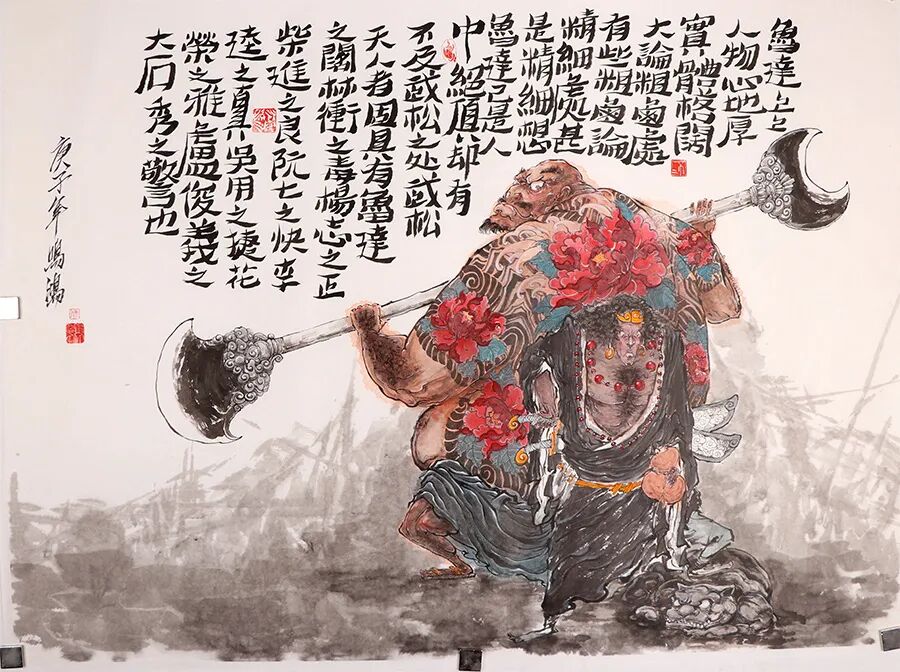 魯達上上
人物心地厚
實體格闊
大論粗鹵處
有些粗鹵論
精細處甚
是精細想
魯達已是人
中絕頂却有
不及武松之处武松
天人者固具有魯達
之闊林衝之毒楊志之正
柴進之良阮七之快李
逵之真吳用之捷花
榮之雅盧俊義之
大石秀之警也
庚子年鳴鴻